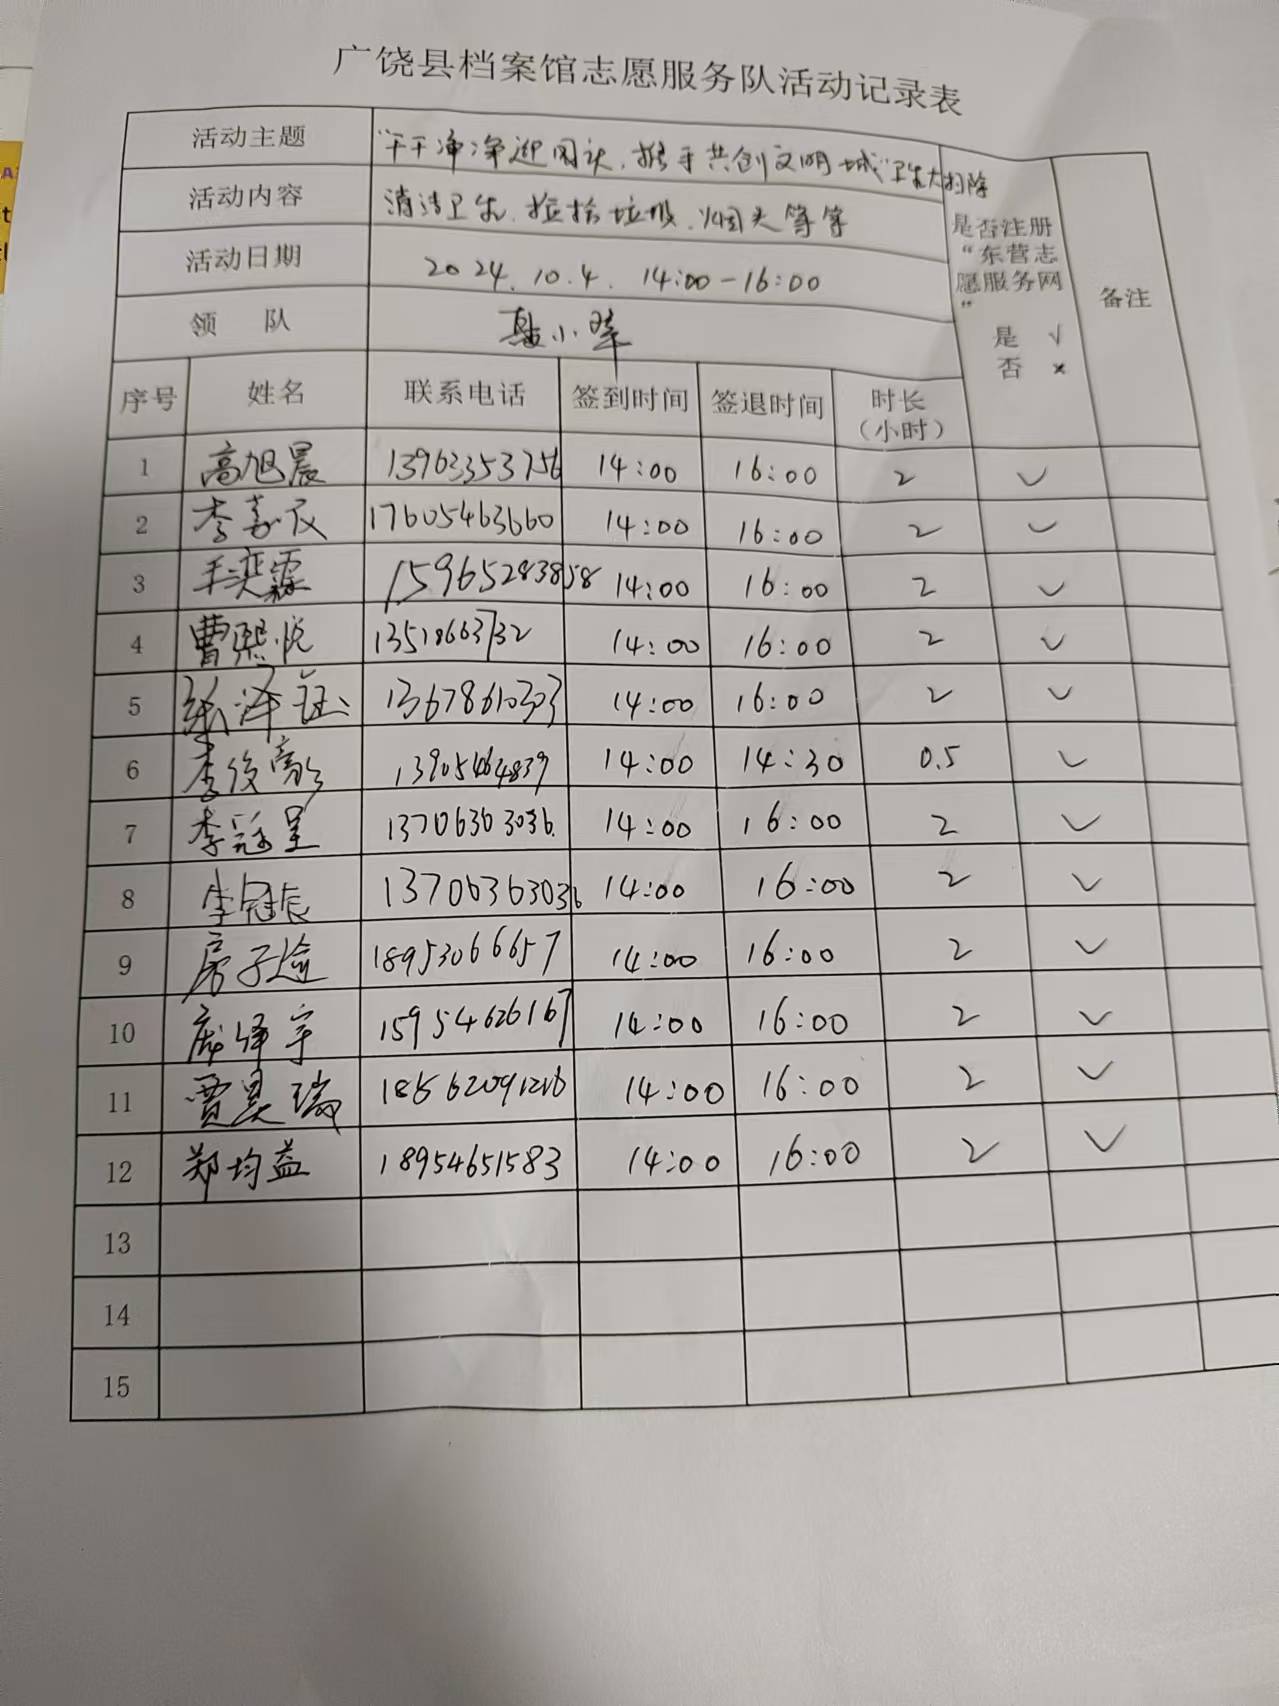 广饶县档案馆志愿服务队活动记录表
活动主题 "干干净净迎国庆，携手共创文明城"卫生大扫除
活动内容 清洁卫生、捡拾垃圾、烟头等等
活动日期 2024.10.4. 14:00-16:00
领 队 小
是否注册
"东营志
愿服务网
"
是 √
否 ×
备注
序号 姓名 联系电话 签到时间 签退时间 时长
（小时）
1 高旭晨 13963353756 14:00 16:00 2 ✓
2 李嘉仪 17605463660 14:00 16:00 2 ✓
3 王奕霖 15965283858 14:00 16:00 2 ✓
4 曹熙悦 14:00 16:00 2 ✓
5 张泽钰 13678610303 14:00 16:00 2 ✓
6 李俊 13905464839 14:00 14:30 0.5 ✓
7 李冠呈 13706363036. 14:00 16:00 2 ✓
8 李冠辰 13706363036 14:00 16:00 2 ✓
9 房子 18953066657 14:00 16:00 2 ✓
10 泽宇 15954626167 14:00 16:00 2 ✓
11 贾昊瑞 18562091216 14:00 16:00 2 ✓
12 郑均益 18954651583 14:00 16:00 2 ✓
13
14
15